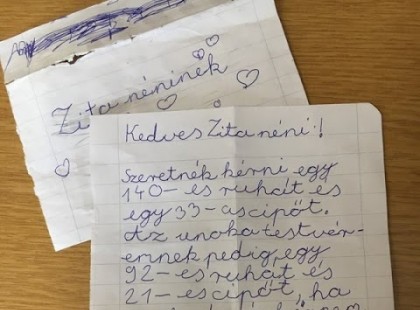 Zita néninek
Kedves Zita néni!
Szeretnék kérni egy
140-es ruhát és
egy 33-as cipőt.
Az unokatestvér-
emnek pedig egy
92-es ruhát és
21-es cipőt, ha